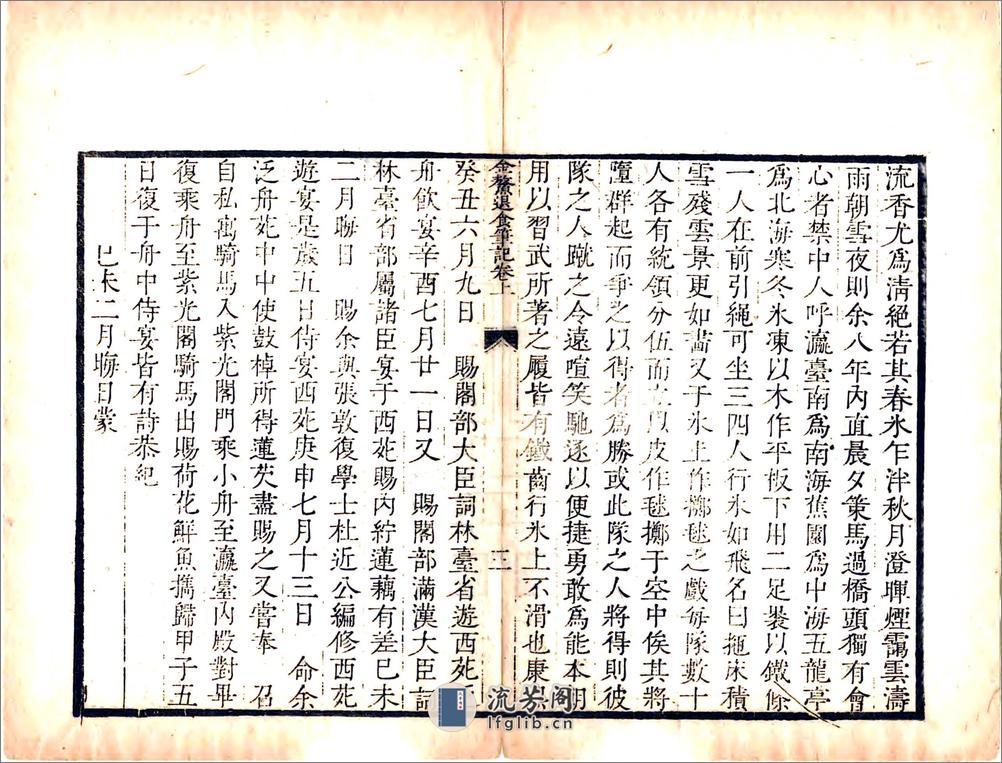 流香尤爲淸絕若其春氷乍泮秋月澄暉煙靄雲濤
雨朝雪夜則余八年內直晨夕策馬過橋頭獨有會
心者禁中人呼瀛臺南爲南海蕉園爲中海五龍亭
爲北海寒冬氷凍以木作平板下用二足裝以鐵條
一人在前引繩可坐三四人行氷如飛名曰拖床積
雪殘雲景更如畵又于氷上作擲毬之戲每隊數十
人各有統領分伍而立以皮作毬擲于空中俟其將
墮群起而爭之以得者爲勝或此隊之人將得則彼
隊之人蹴之令遠喧笑馳逐以便捷勇敢爲能本朝
用以習武所著之履皆有鐵齒行氷上不滑也康
金鰲退食筆記卷上
三
癸丑六月九日 賜閣部大臣詞林臺省遊西苑
舟飲宴辛酉七月廿一日又 賜閣部滿漢大臣詞
林臺省部屬諸臣宴于西苑賜內紵蓮藕有差己未
二月晦日 賜余與張敦復學士杜近公編修西苑
遊宴是歲五日侍宴西苑庚申七月十三日 命余
泛舟苑中中使鼓棹所得蓮芡盡賜之又嘗奉 召
自私寓騎馬入紫光閣門乘小舟至瀛臺內殿對畢
復乘舟至紫光閣騎馬出賜荷花鮮魚擕歸甲子五
日復于舟中侍宴皆有詩恭紀
己未二月晦日蒙
流芳阁
lfglib.cn